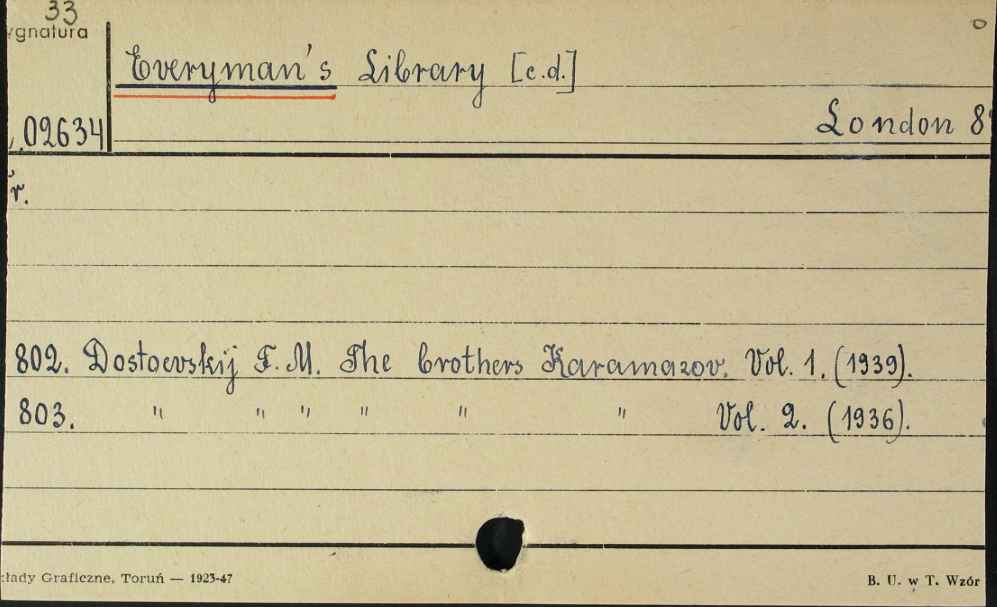 33
ygnatura
Everyman's Library [c.d.]
02634
London 8°
r.
802. Dostoevskij F. M. The brothers Karamazov. Vol. 1. (1939).
803. " " " " " " Vol. 2. (1936).
kłady Graficzne, Toruń — 1923-47
B. U. w T. Wzór